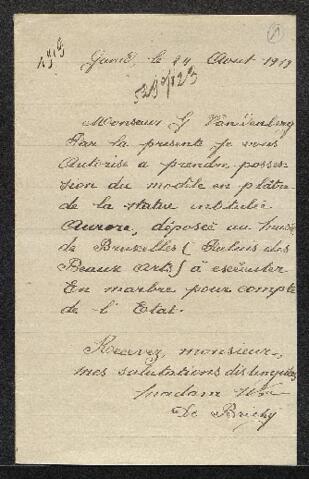 1919
Gand, le 24 Aout 1919
Monsieur G Vandenberg
Par la presente je vous
Autorise a prendre posses-
sion du modile en plâtre
de la statu intitulée
Aurore, déposée au
de Bruxelles (Palais des
Beaux Arts) à exécuter
En marbre pour compte
de l'Etat.
Recevez, monsieur,
mes salutations distinguées
madam
De